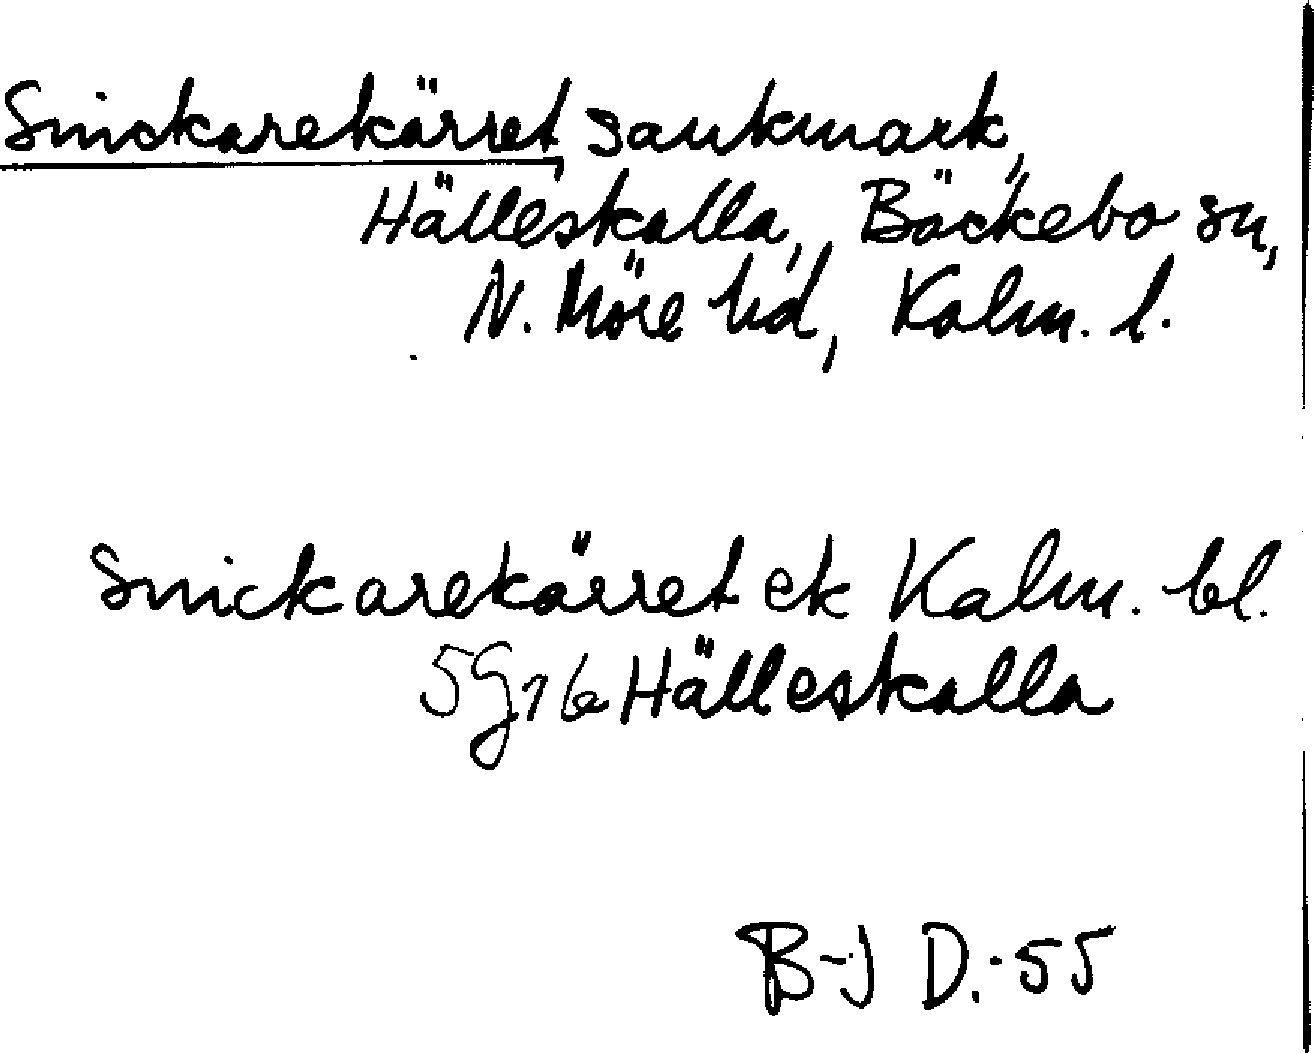 Snickarekärret, sankmark,
Hälleskalla, Bäckebo sn,
N. Möre hd, Kalm. l.
Snickarekärret ek Kalm. bl.
5G7b Hälleskalla
B-J D.-55